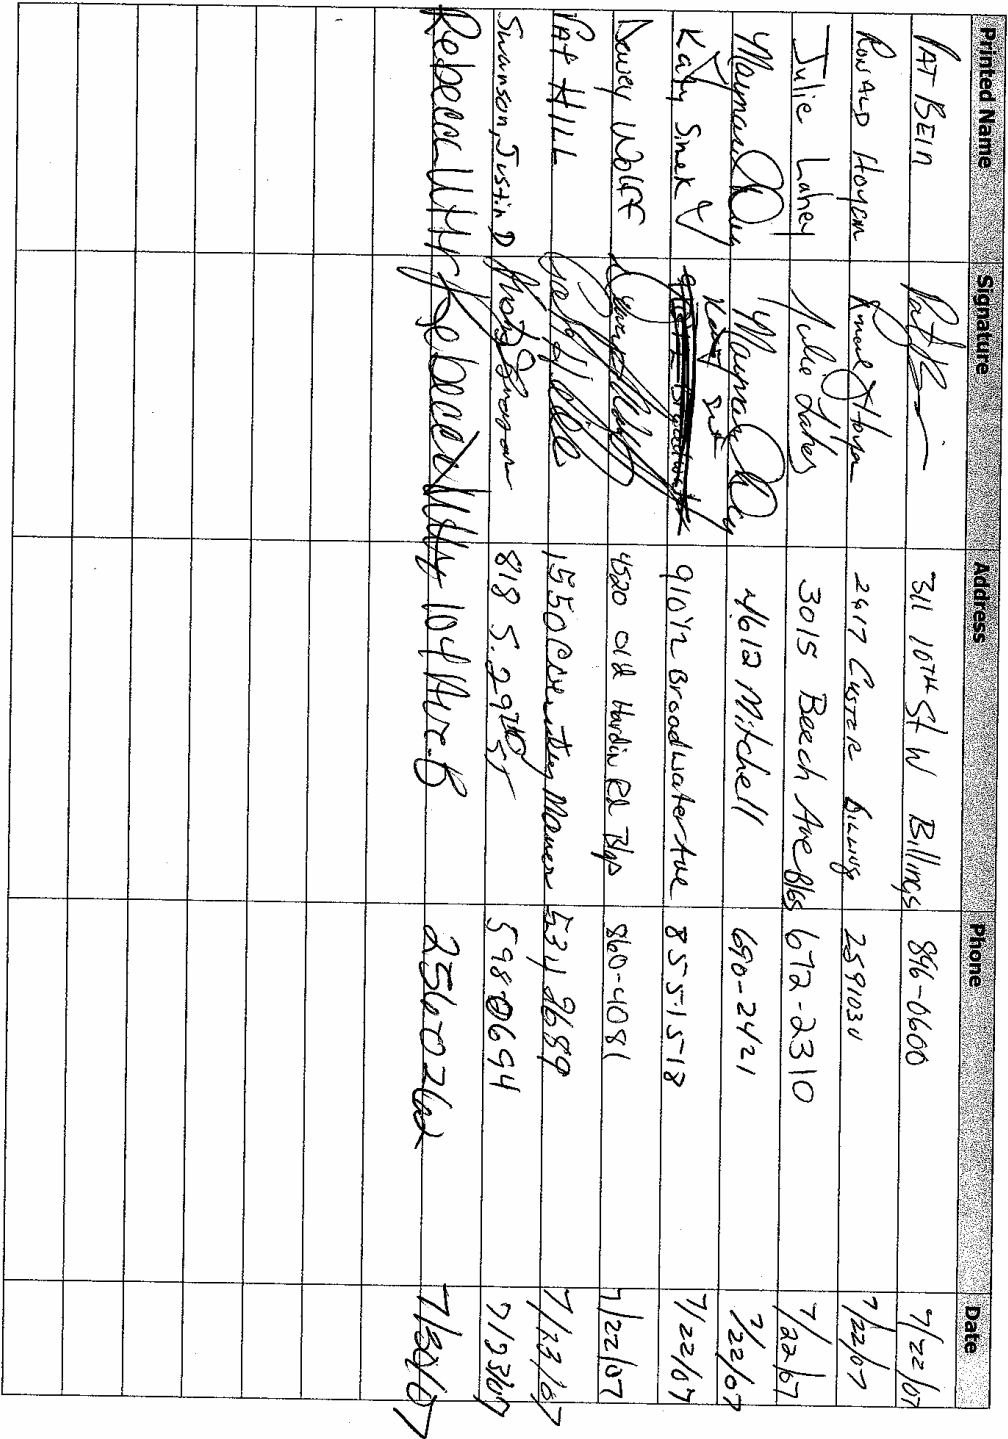 Printed Name Signature Address Phone Date
PAT BEIN 311 10TH St W Billings 896-0600 7/22/07
RONALD Hoyem 2417 CUSTER Billings 2591031 7/22/07
Julie Lahey Julie Lahey 3015 Beech Ave Blgs 672-2310 7/22/07
4612 Mitchell 690-2421 7/22/07
Katy Simek Katy 910 1/2 Broadwater Ave 855-1518 7/22/07
Dewey Wolff 4520 Old Hardin Rd Blgs 860-4081 7/22/07
PAT HILL 1550 Manor 531 2689 7/23/07
Swanson, Justin D 818 S. 29TH ST 598-0694 7/23/07
Rebecca Rebecca 104 Ave. B 2560262